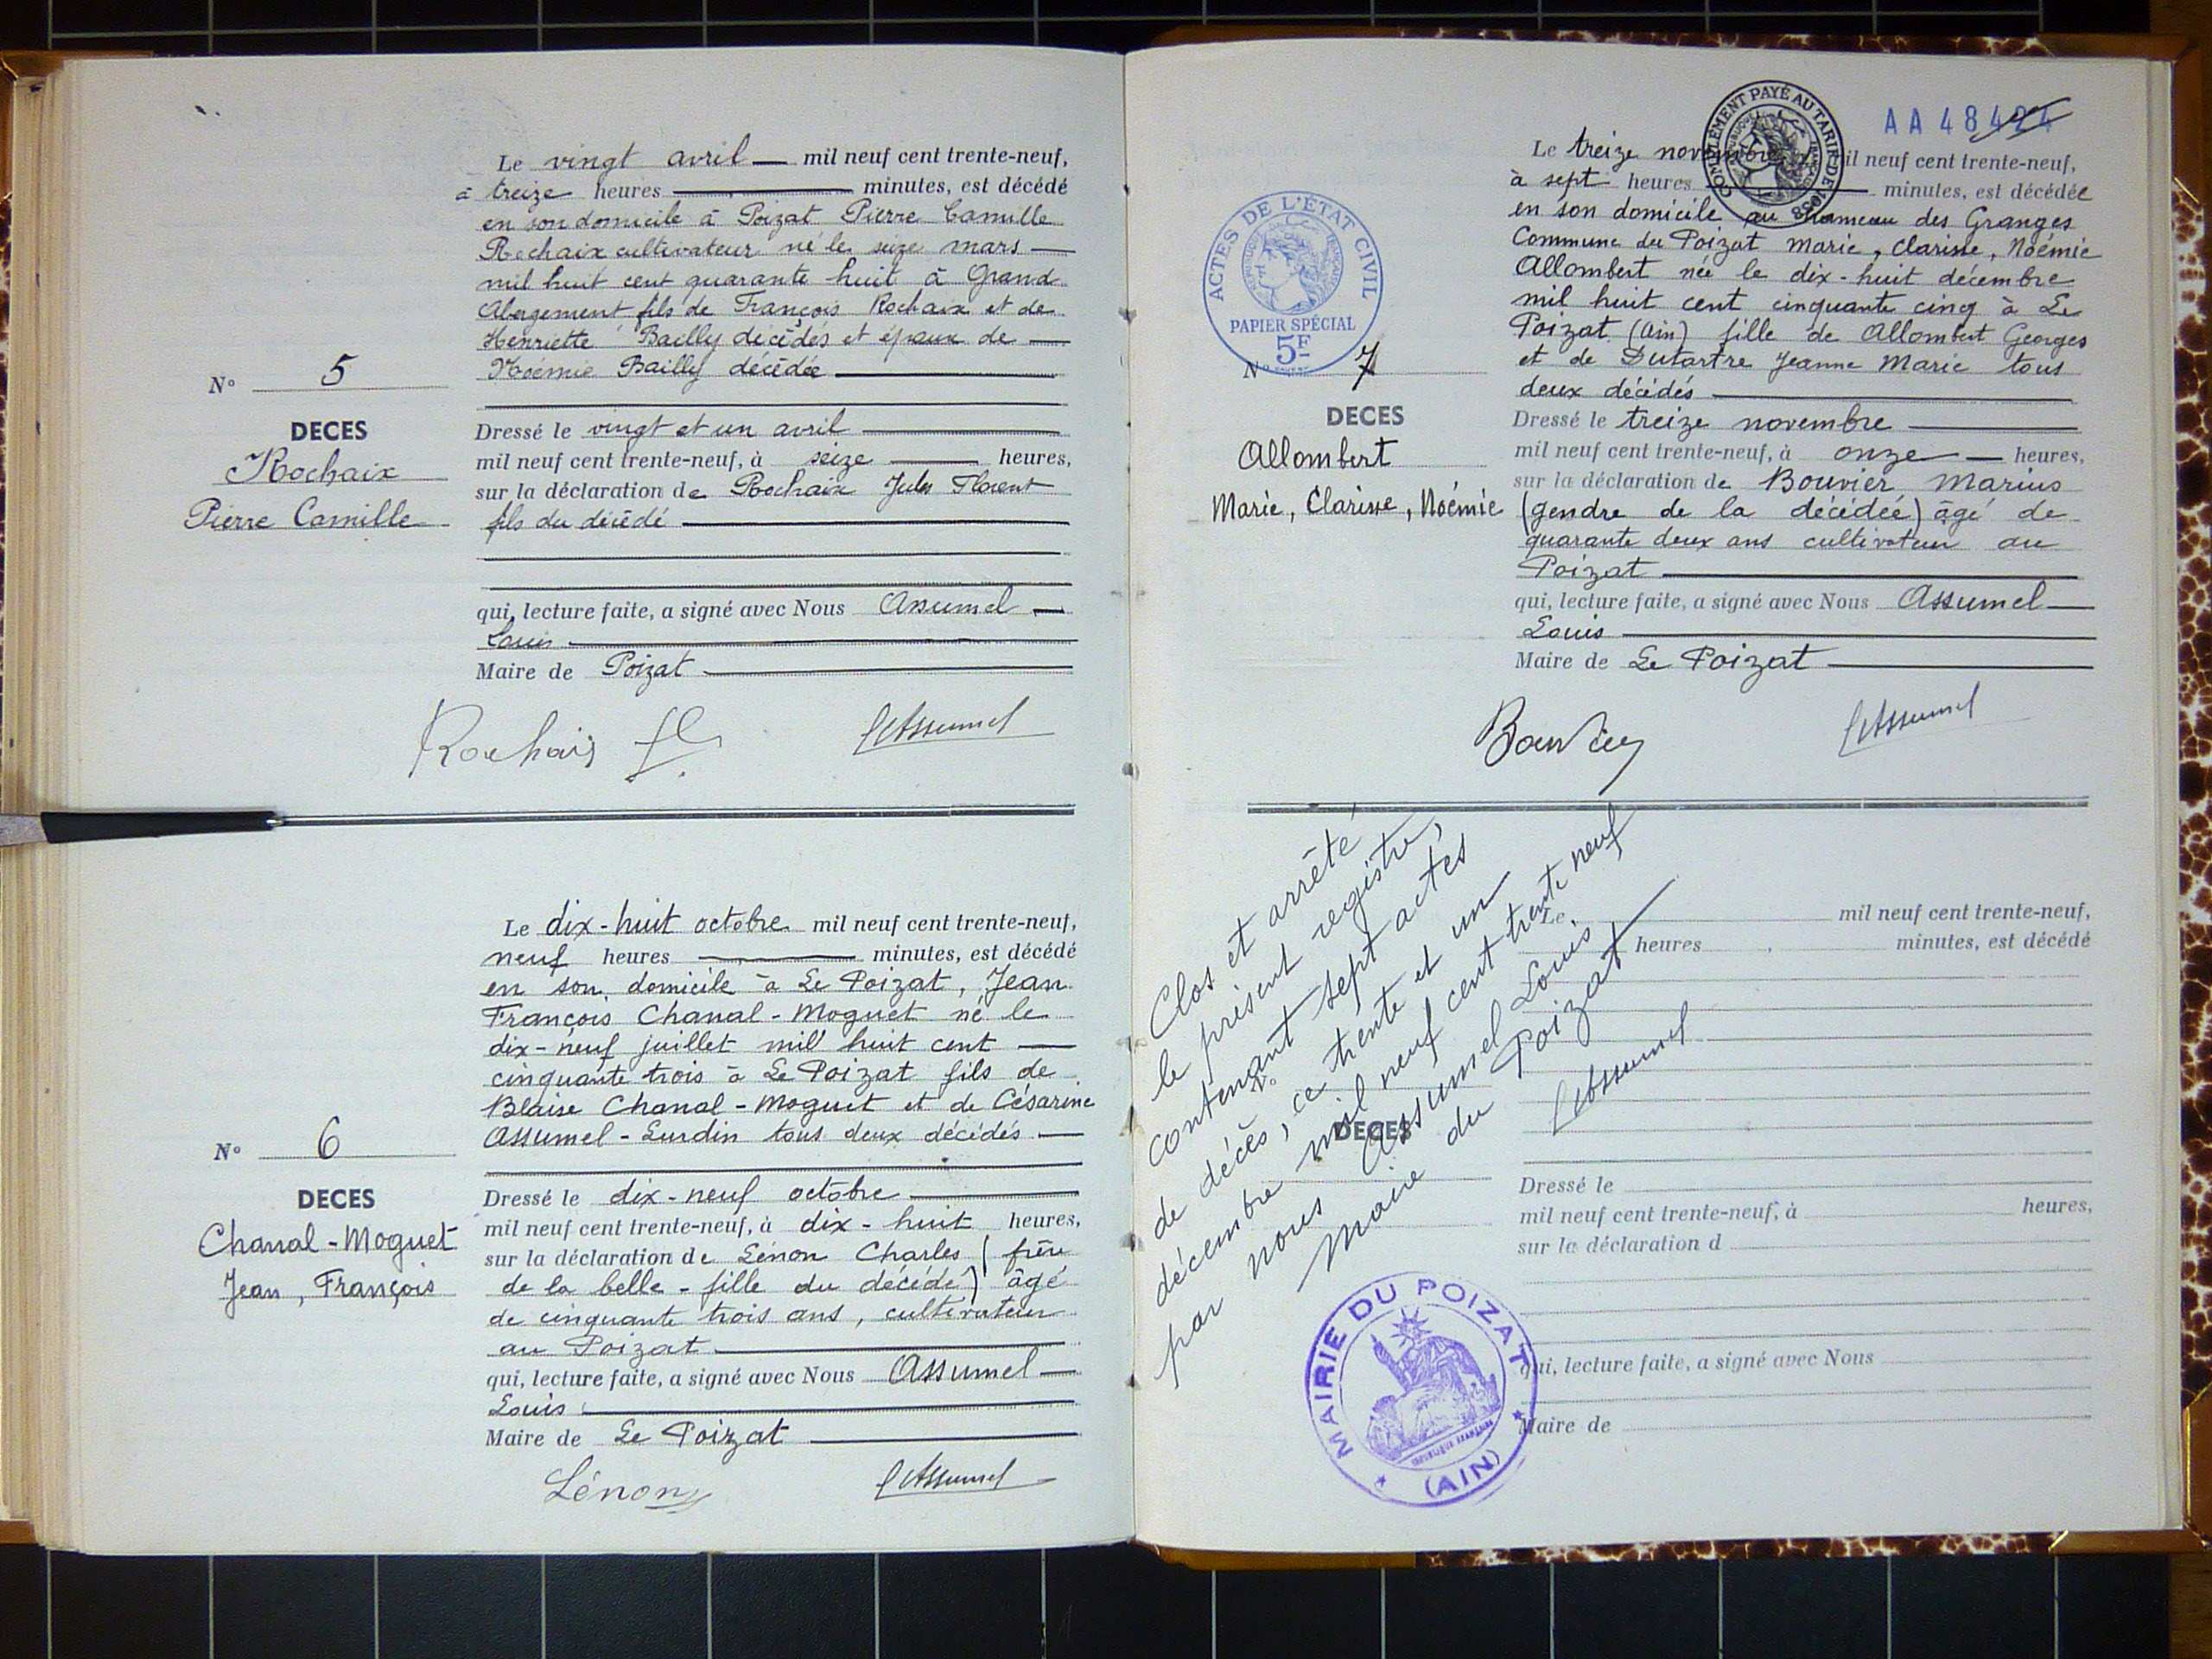 Le vingt avril mil neuf cent trente-neuf,
à treize heures minutes, est décédé
en son domicile à Poizat Pierre Camille
Rochaix cultivateur né le seize mars
mil huit cent quarante huit à Grand
Abergement fils de François Rochaix et de
Henriette Bailly décédés et époux de
Noémie Bailly décédée
N° 5
DECES
Rochaix
Pierre Camille
Dressé le vingt et un avril
mil neuf cent trente-neuf, à seize heures,
sur la déclaration de Rochaix Jules Florent
fils du décédé
qui, lecture faite, a signé avec Nous Assumel
Louis
Maire de Poizat
Rochaix
LAssumel
Le dix-huit octobre mil neuf cent trente-neuf,
neuf heures minutes, est décédé
en son domicile à Le Poizat, Jean
François Chanal-Moguet né le
dix-neuf juillet mil huit cent
cinquante trois à Le Poizat fils de
Blaise Chanal-Moguet et de Césarine
Assumel-Lurdin tous deux décédés
N° 6
DECES
Chanal-Moguet
Jean, François
Dressé le dix-neuf octobre
mil neuf cent trente-neuf, à dix-huit heures,
sur la déclaration de Lénon Charles (frère
de la belle-fille du décédé) âgé
de cinquante trois ans, cultivateur
au Poizat
qui, lecture faite, a signé avec Nous Assumel
Louis
Maire de Le Poizat
Lénon
LAssumel
COMPLÉMENT PAYÉ AU TARIF DE 1938
AA 48424
Le treize novembre mil neuf cent trente-neuf,
à sept heures minutes, est décédée
en son domicile au hameau des Granges
Commune du Poizat Marie, Clarisse, Noémie
Allombert née le dix-huit décembre
mil huit cent cinquante cinq à Le
Poizat (Ain) fille de Allombert Georges
et de Dutartre Jeanne Marie tous
deux décédés
ACTES DE L'ÉTAT CIVIL
PAPIER SPÉCIAL
5F
N° 7
DECES
Allombert
Marie, Clarisse, Noémie
Dressé le treize novembre
mil neuf cent trente-neuf, à onze heures,
sur la déclaration de Bouvier Marius
(gendre de la décédée) âgé de
quarante deux ans cultivateur au
Poizat
qui, lecture faite, a signé avec Nous Assumel
Louis
Maire de Le Poizat
Bouvier
LAssumel
Clos et arrêté
le présent registre,
contenant sept actes
de décès, ce trente et un
décembre mil neuf cent trente neuf
par nous Assumel Louis
Maire du Poizat
LAssumel
Le mil neuf cent trente-neuf,
heures minutes, est décédé
N°
DECES
Dressé le
mil neuf cent trente-neuf, à heures,
sur la déclaration d
qui, lecture faite, a signé avec Nous
Maire de
MAIRIE DU POIZAT
RÉPUBLIQUE FRANÇAISE
(AIN)